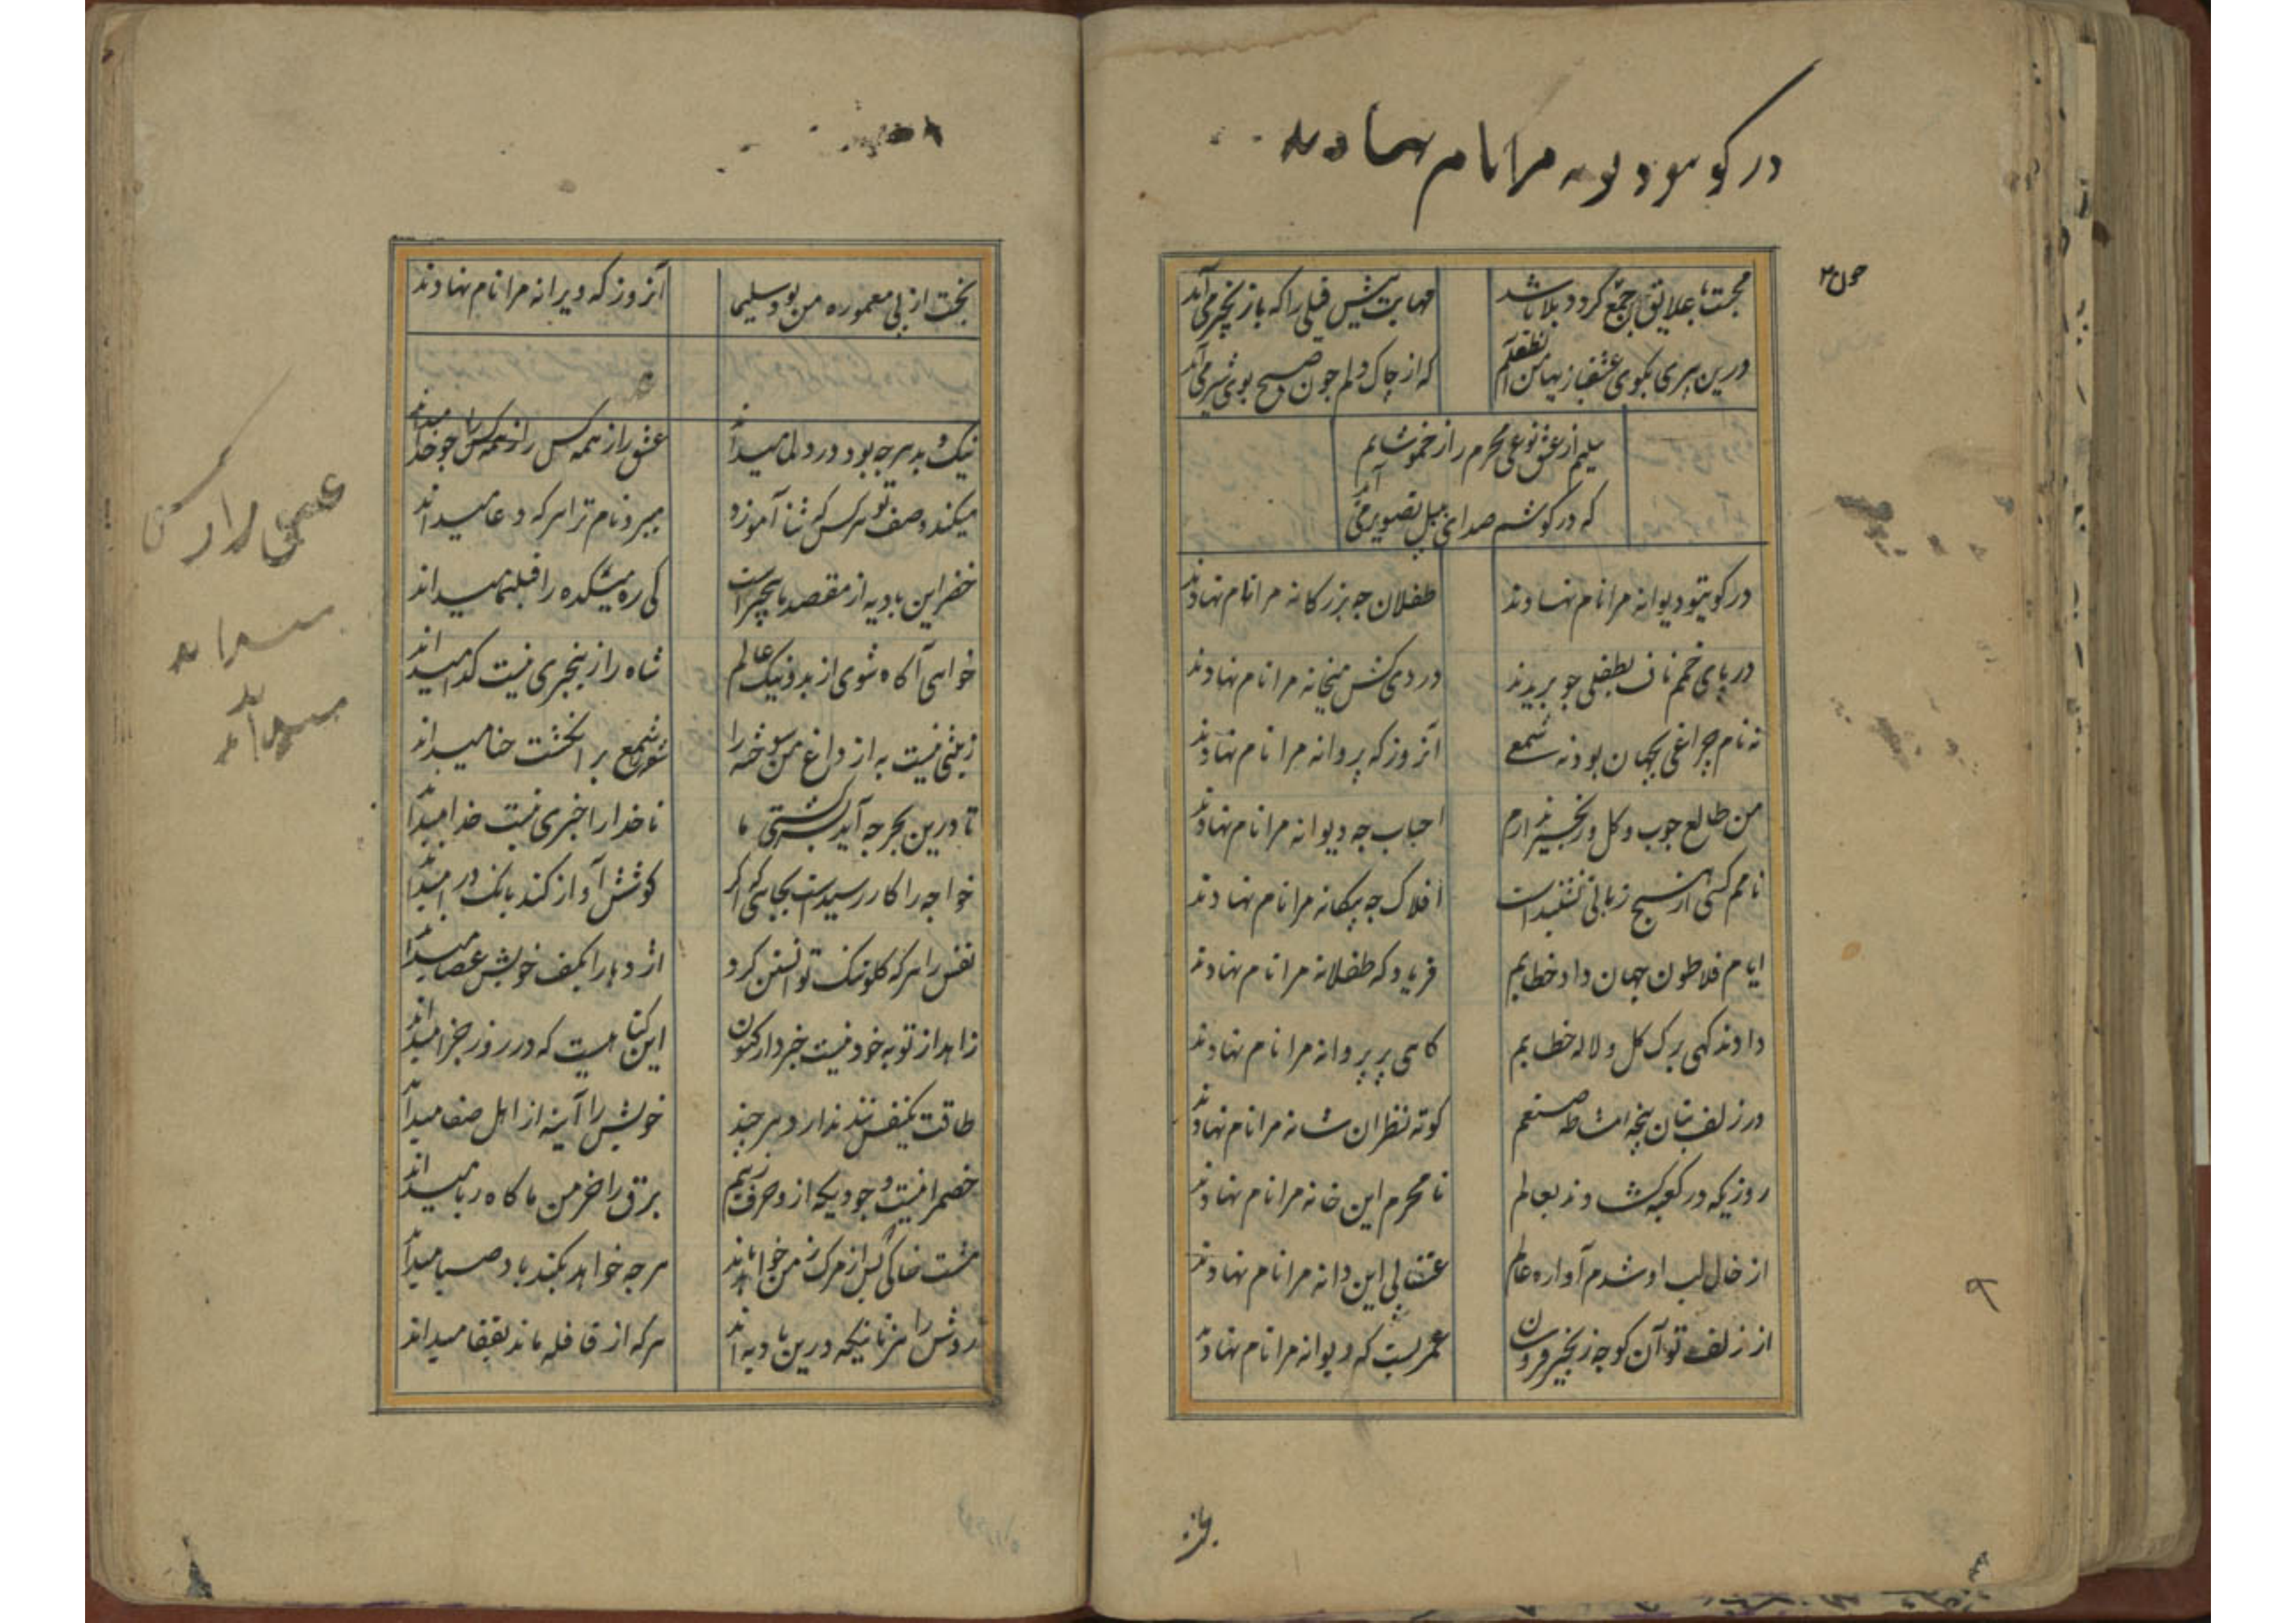 در کو سو دیوانه مرا نام نهادند
محبت با علایق جمع کردد بلا باشد مهابت بیش فیلی را که با زنجیر می آید
درین پیری بکوی عشقبازیها من آن طفلم که از چاک دلم چون صبح بوی شیر می آید
سلیم از عشق نوعی محرم راز خموشانم
که در کوشم صدای بلبل تصویر می آید
در کویتو دیوانه مرا نام نهادند طفلان چه بزرکانه مرا نام نهادند
در پای خمم ناف بطفلی چو بریدند دردی کش میخانه مرا نام نهادند
نه نام چراغی بجهان بود نه شمعی آنروز که پروانه مرا نام نهادند
من طالع چوب و کل و زنجیر ندارم احباب چه دیوانه مرا نام نهادند
نامم کسی از هیچ زبانی نشنیدست افلاک چه بیکانه مرا نام نهادند
ایام فلاطون جهان داد خطابم فریاد که طفلانه مرا نام نهادند
دادند کهی برک کل و لاله خطابم کاهی پر پروانه مرا نام نهادند
در زلف بتان پنجه مشاطه صنعم کوته نظران شانه مرا نام نهادند
روزیکه در کعبه کشادند بعالم نامحرم این خانه مرا نام نهادند
از خال لب او شدم آواره عالم عنقای این دانه مرا نام نهادند
از زلف تو آن کوچه زنجیر فروشان عمریست که دیوانه مرا نام نهادند
بخت از پی معموره من بود سلیما آنروز که ویرانه مرا نام نهادند
نیک و بد هرچه بود در دل ما میداند عشق راز همه کس را همه کس چو خدا میداند
میکند وصف تو هر کس که ثنا آموزد میبرد نام ترا هر که دعا میداند
خضر این بادیه از مقصد ما بیخبر است کی ره میکده را قبله نما میداند
خواهی آکاه شوی از بد و نیک عالم شاه را زین خبری نیست کدا میداند
زینتی نیست به از داغ من سوخته را شور شمع بر انکشت حنا میداند
تا درین بحر چه آید بسر کشتی ما ناخدا را خبری نیست خدا میداند
خواجه را کار رسیدست بجایی که اکر کوشش آواز کند بانک درا میداند
نفس را هر که کلو تنک توانستن کرد اژدها را بکف خویش عصا میداند
زاهد از توبه خود نیست خبردار کنون این کناهیست که در روز جزا میداند
طاقت یکنفس تند ندارد هر چند خویش را آینه از اهل صفا میداند
خصم را نیست وجودیکه ازو حرف زنیم برق را خرمن ما کاه ربا میداند
مشت خاکی پس از مرک ز من خواهد ماند هر چه خواهد بکند باد صبا میداند
روش راهنما نیکه درین بادیه اند هر که از قافله ماند بقفا میداند